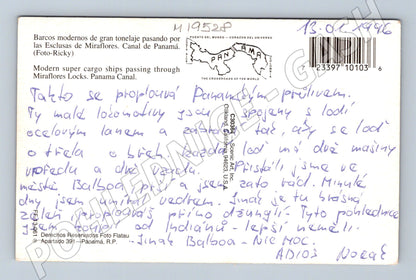 M 19528
Barcos modernos de gran tonelaje pasando por
las Esclusas de Miraflores. Canal de Panamá.
(Foto-Ricky)
Modern super cargo ships passing through
Miraflores Locks. Panama Canal.
PUENTE DEL MUNDO - CORAZON DEL UNIVERSO
PANAMA
THE CROSSROADS OF THE WORLD
13.02.1996
7 23397 10103 6
Takto se proplouvá Panamským průlivem.
Ty malé lokomotivy jsou spojeny s lodí
ocelovým lanem a tak, aby se loď
o břeh. Každá loď má dvě mašiny
vpředu a dvě vzadu. Přistáli jsme ve
městě Balboa a jsem zato rád. Minulé
dny jsem. Jinak je tu krásná
zeleň přímo džungle. Tyto pohlednice
jsem od Indiánů - lepší neměli
Jinak Balboa - NIC MOC.
ADIOS
Derechos Reservados Foto Flatau
Apartado 391 - Panamá, R.P.
Oakland, California 94623, U.S.A.
POHLEDNICE-CACH